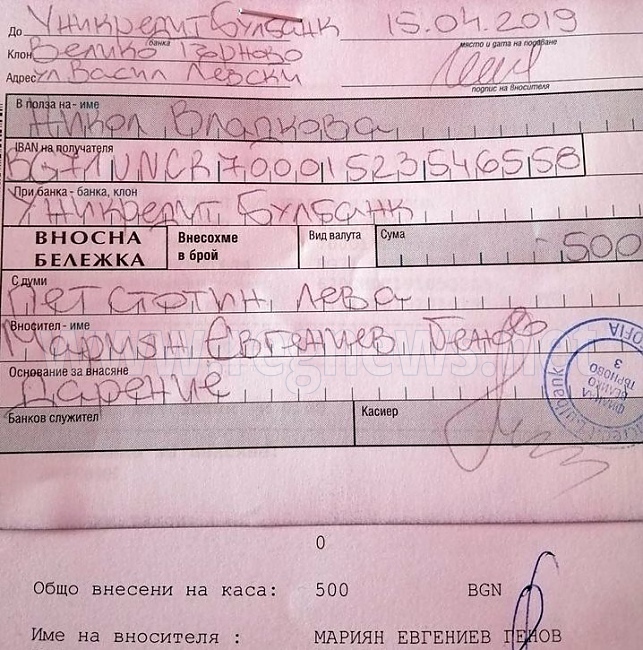 До Уникредит Булбанк 15.04.2019
банка място и дата на подаване
Клон Велико Търново
Адрес ул Васил Левски
подпис на вносителя
В полза на - име
Никол Владкова
IBAN на получателя
UNCR70001523546558
При банка - банка, клон
Уникредит Булбанк
ВНОСНА БЕЛЕЖКА Внесохме в брой Вид валута Сума 500
С думи
Петстотин лева
Вносител - име
Мариян Евгениев Генов
Основание за внасяне
Дарение
www.regnews.net
SOFIA
ФИЛИАЛ
ВЕЛИКО
ТЪРНОВО
3
Bulbank
Банков служител Касиер
0
Общо внесени на каса: 500 BGN
Име на вносителя : МАРИЯН ЕВГЕНИЕВ ГЕНОВ